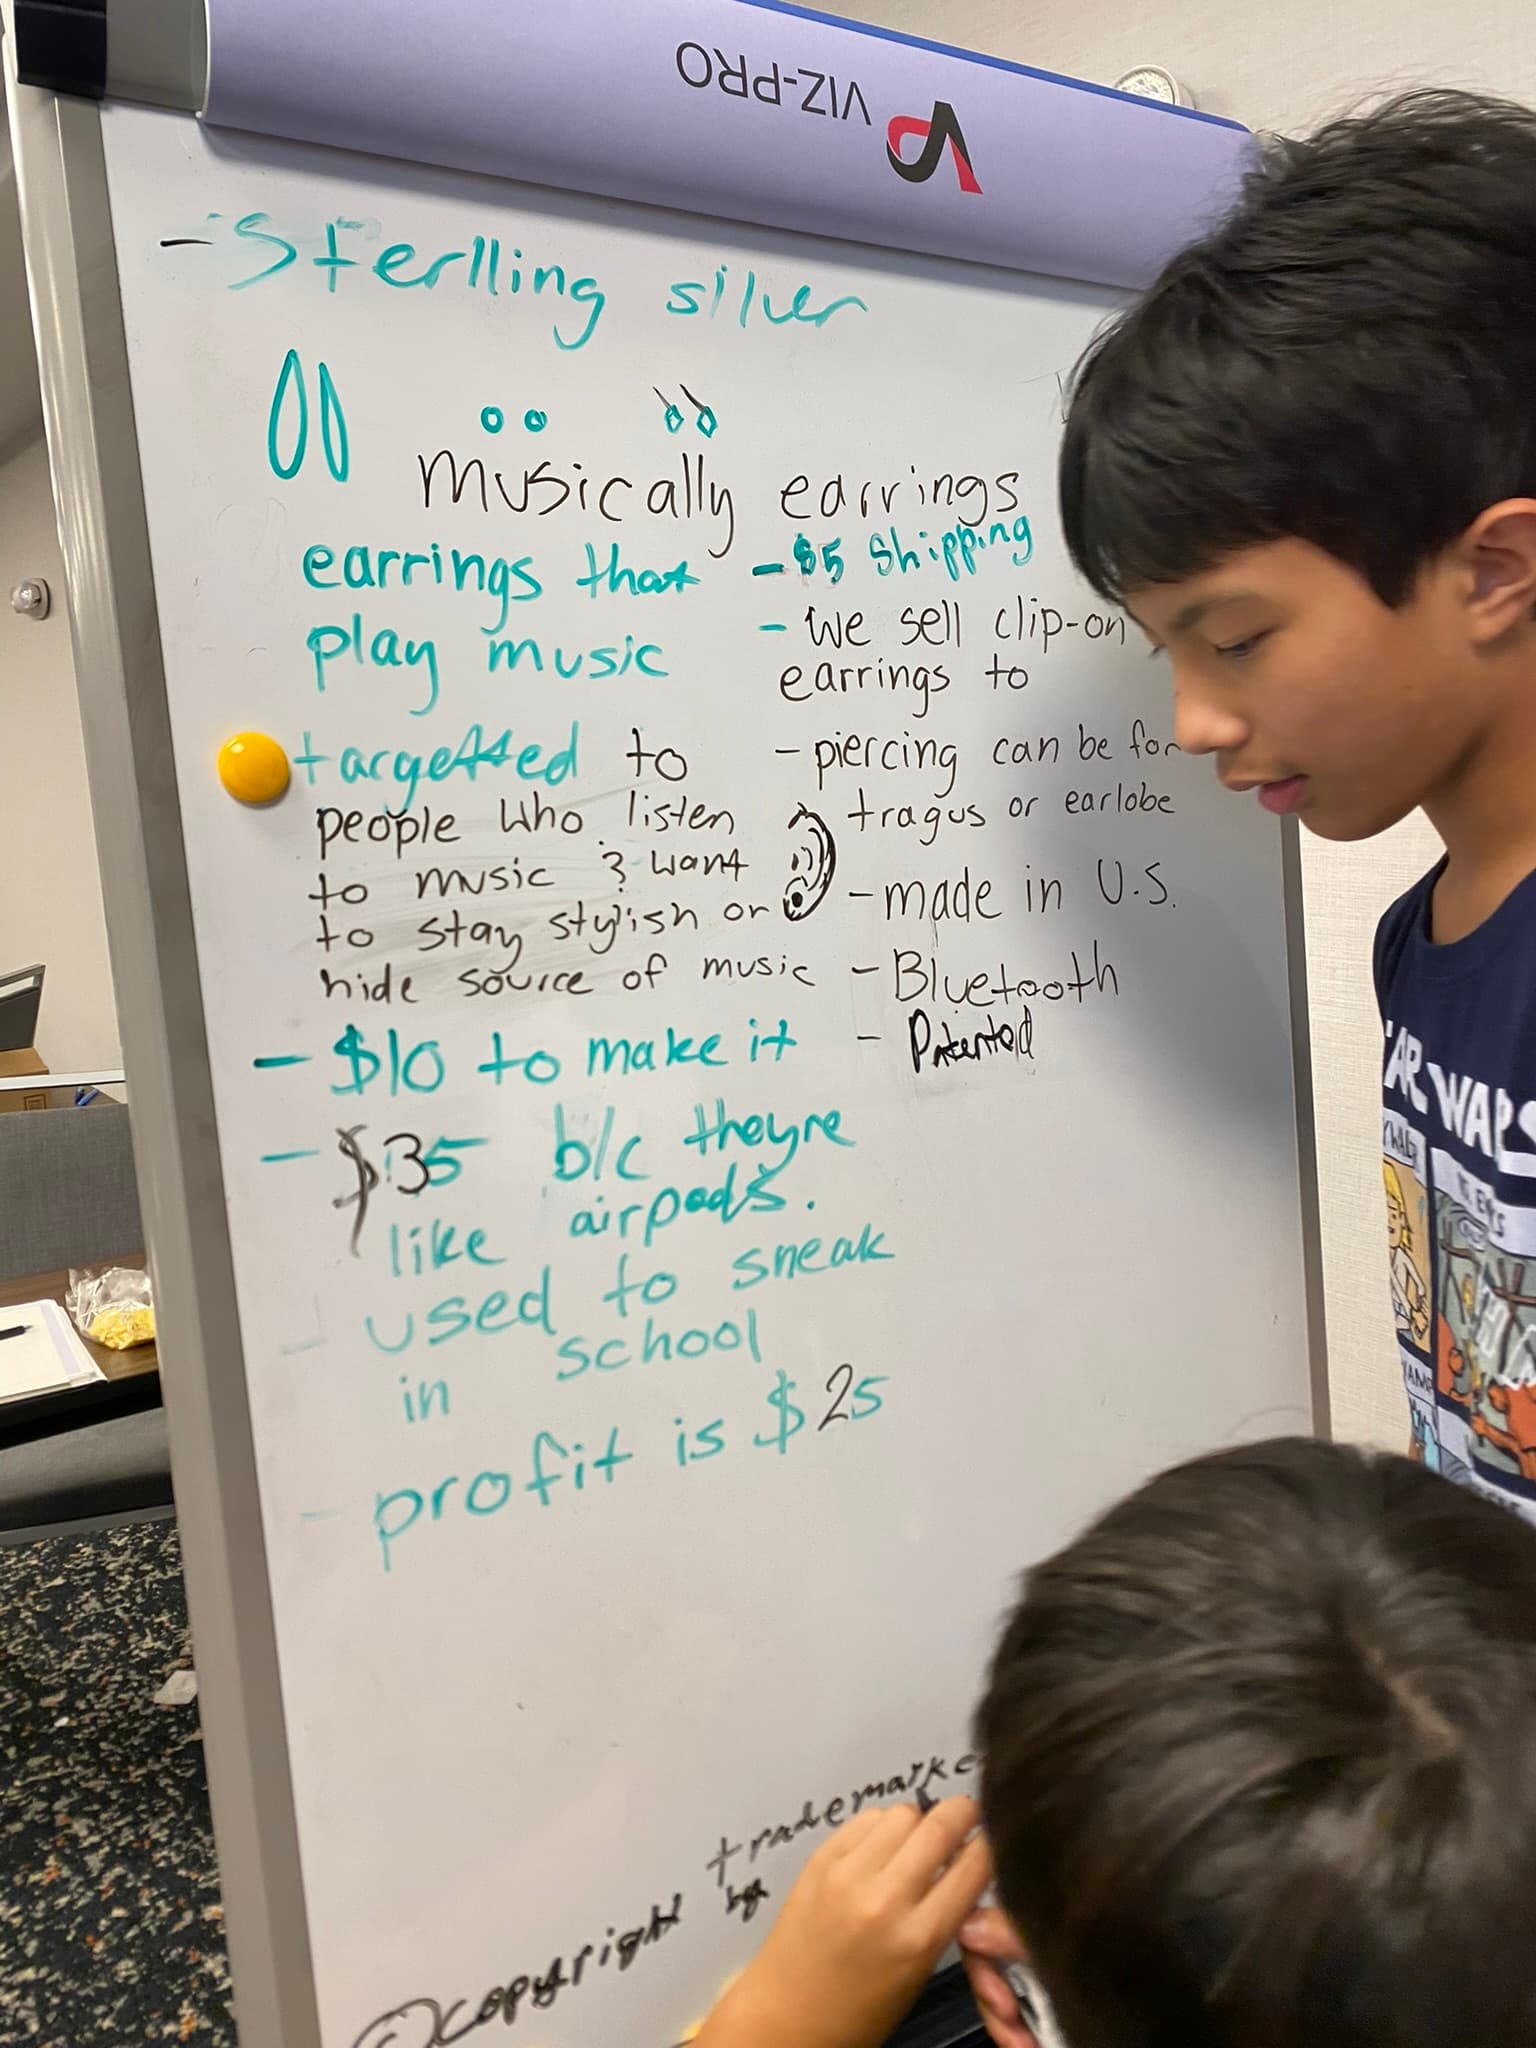 VIZ-PRO
- Sterlling silver
musically earrings
earrings that
play music
targetted to
people who listen
to music & want
to stay stylish or
hide source of music
- $10 to make it
- $35 b/c theyre
like airpods.
- used to sneak
in school
- profit is $25
- $5 shipping
- We sell clip-on
earrings to
- piercing can be for
tragus or earlobe
- made in U.S.
- Bluetooth
- Patented
© copyright trademark
by
STAR WARS